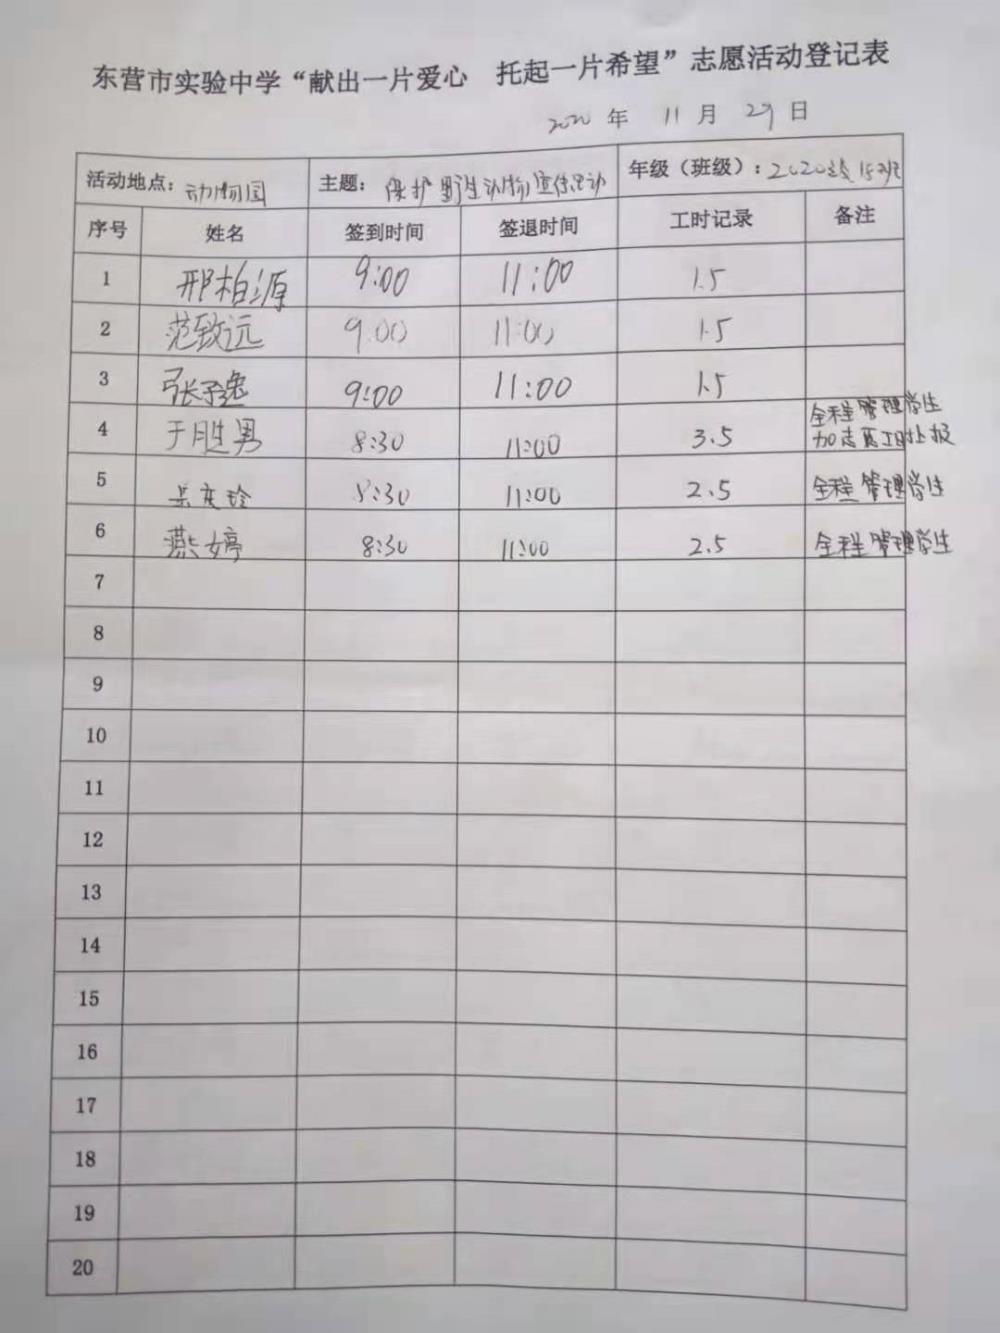 东营市实验中学“献出一片爱心 托起一片希望”志愿活动登记表
2020 年 11 月 29 日
活动地点：动物园 主题：保护野生动物宣传活动 年级（班级）：2020级15班
序号 姓名 签到时间 签退时间 工时记录 备注
1 邢柏源 9:00 11:00 1.5
2 范致远 9:00 11:00 1.5
3 张子逸 9:00 11:00 1.5
4 于胜男 8:30 11:00 3.5 全程管理学生
加志愿工时上报
5 8:30 11:00 2.5 全程管理学生
6 燕婷 8:30 11:00 2.5 全程管理学生
7
8
9
10
11
12
13
14
15
16
17
18
19
20